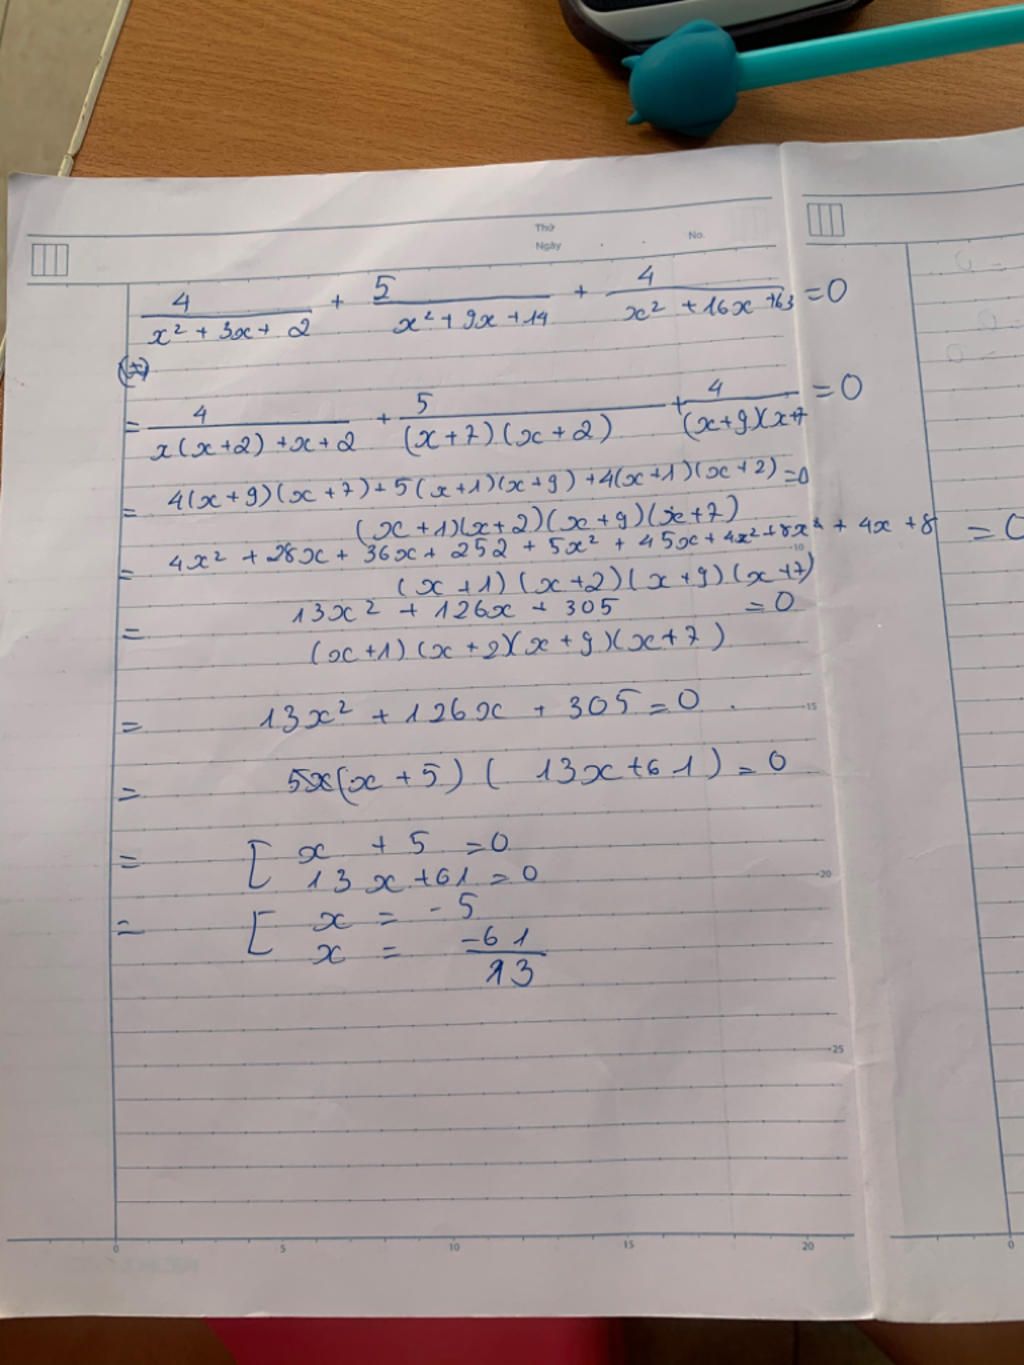 Thứ
Ngày
No.
4/(x² + 3x + 2) + 5/(x² + 9x + 14) + 4/(x² + 16x + 63) = 0
= 4/(x(x+2) + x + 2) + 5/((x+7)(x+2)) + 4/((x+9)(x+7 = 0
= (4(x+9)(x+7) + 5(x+1)(x+9) + 4(x+1)(x+2))/((x+1)(x+2)(x+9)(x+7)) = 0
= (4x² + 28x + 36x + 252 + 5x² + 45x + 4x² + 8x + 4x + 8)/((x+1)(x+2)(x+9)(x+7)) = 0
= (13x² + 126x + 305)/((x+1)(x+2)(x+9)(x+7)) = 0
= 13x² + 126x + 305 = 0
= (x+5)(13x+61) = 0
= [ x + 5 = 0
13x + 61 = 0
= [ x = -5
x = -61/13
10
15
20
25
0 5 10 15 20
0